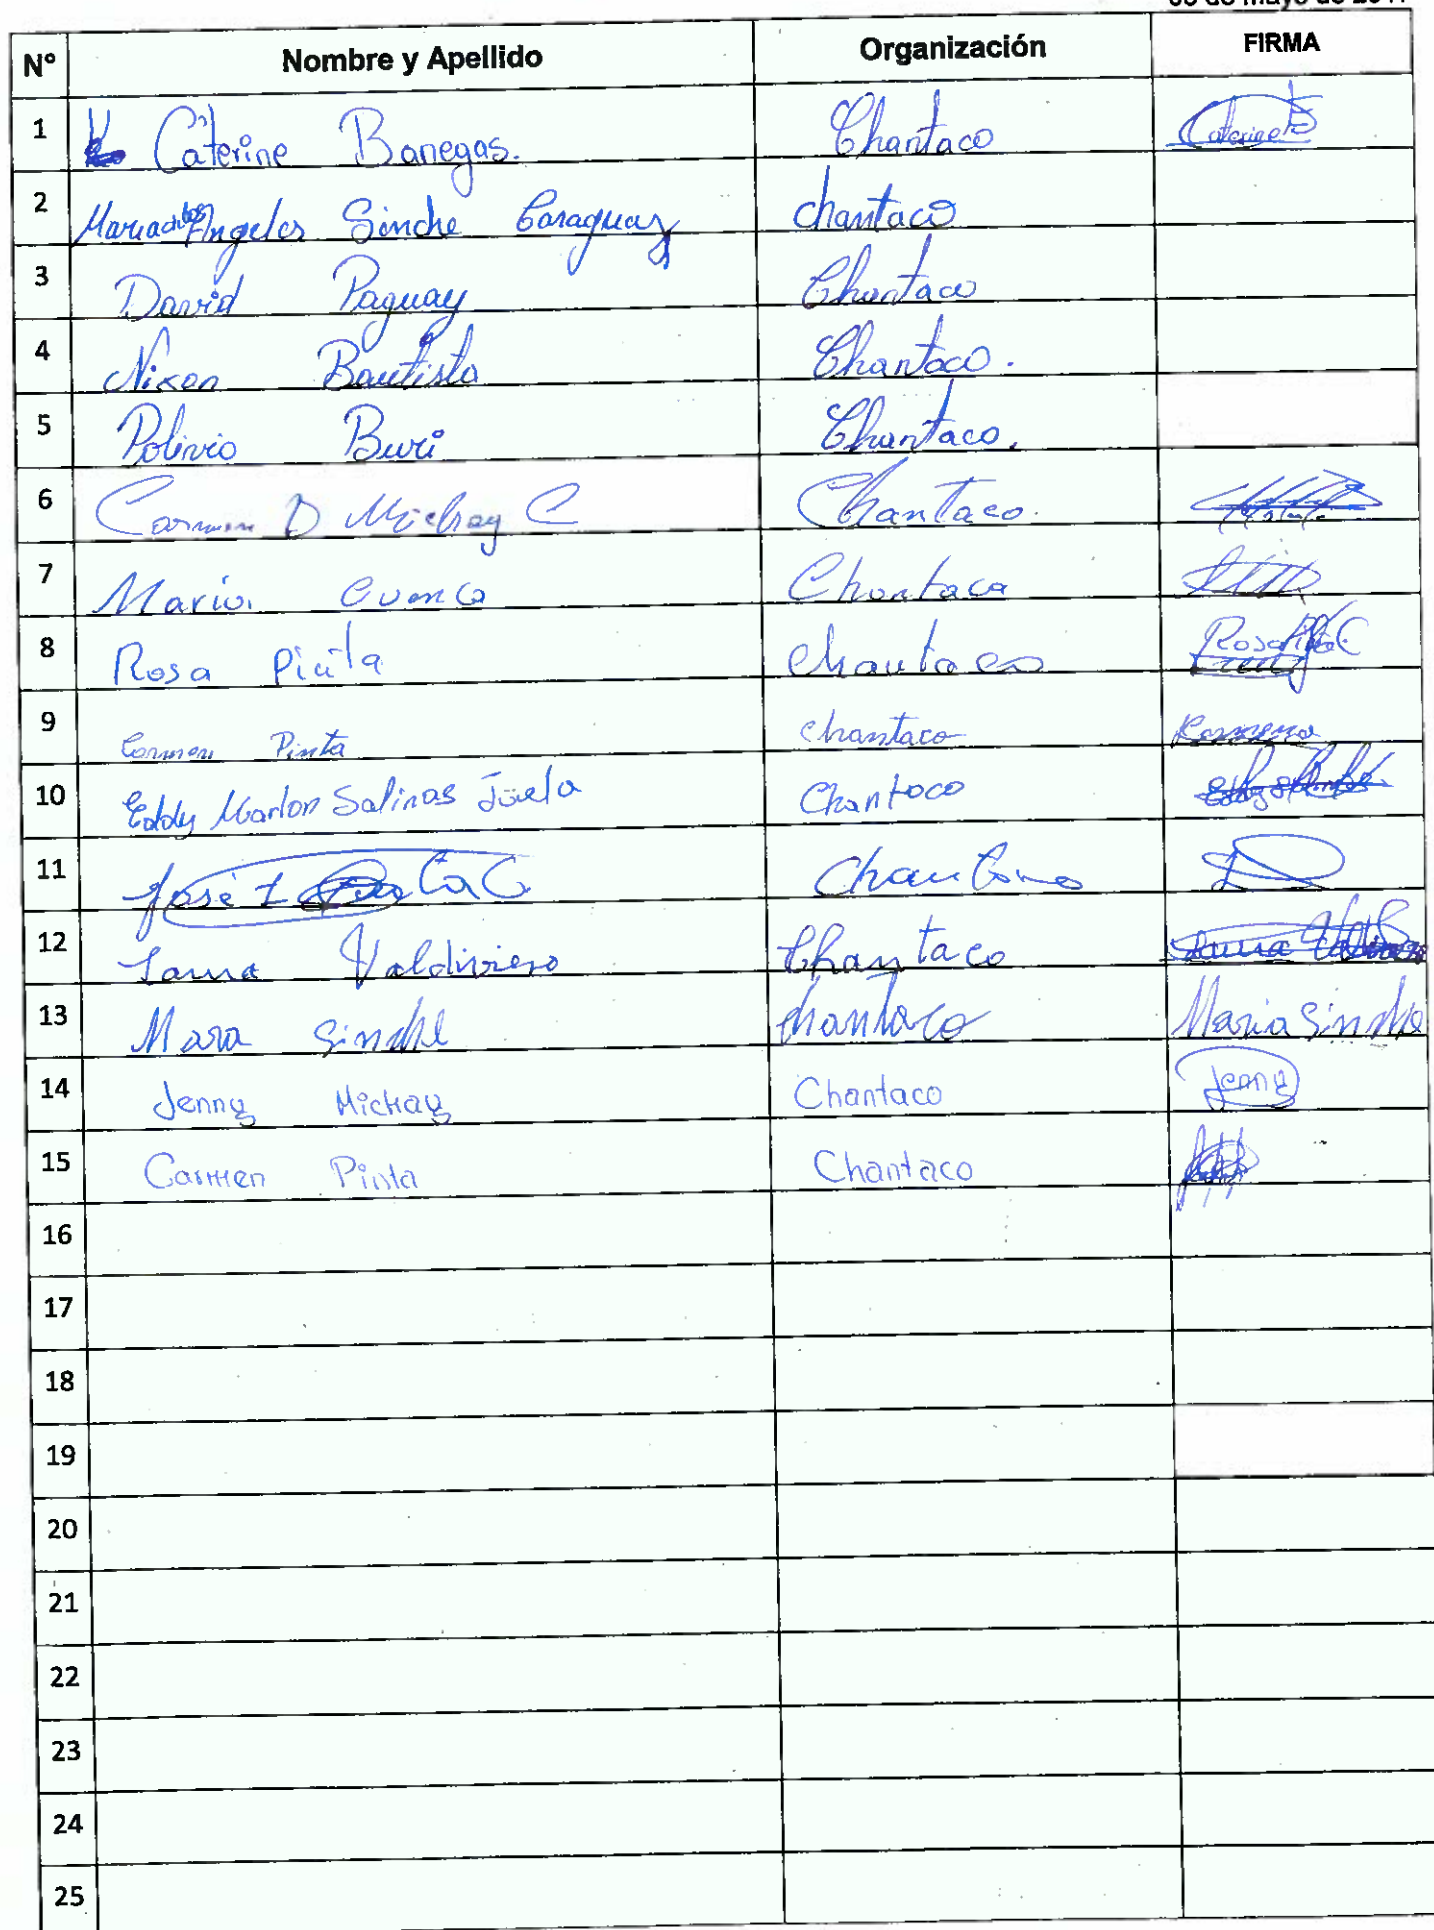 de mayo de
N° Nombre y Apellido Organización FIRMA
1 Caterine Banegas. Chantaco Caterine
2 Maria de los Angeles Sinche Caraguay chantaco
3 David Paguay Chantaco
4 Nixon Bautista Chantaco.
5 Polivio Buri Chantaco.
6 Carmen D Michay C Chantaco.
7 Maria Cuenca Chantaca
8 Rosa Pinta Chantaco Rosa
9 Carmen Pinta chantaco Carmen
10 Eddy Marlon Salinas Chantaco
11 José
12 Laura Valdivieso Chantaco Laura
13 Mara Sinche chantaco Maria Sinche
14 Jenny Michay Chantaco Jenny
15 Carmen Pinta Chantaco
16
17
18
19
20
21
22
23
24
25